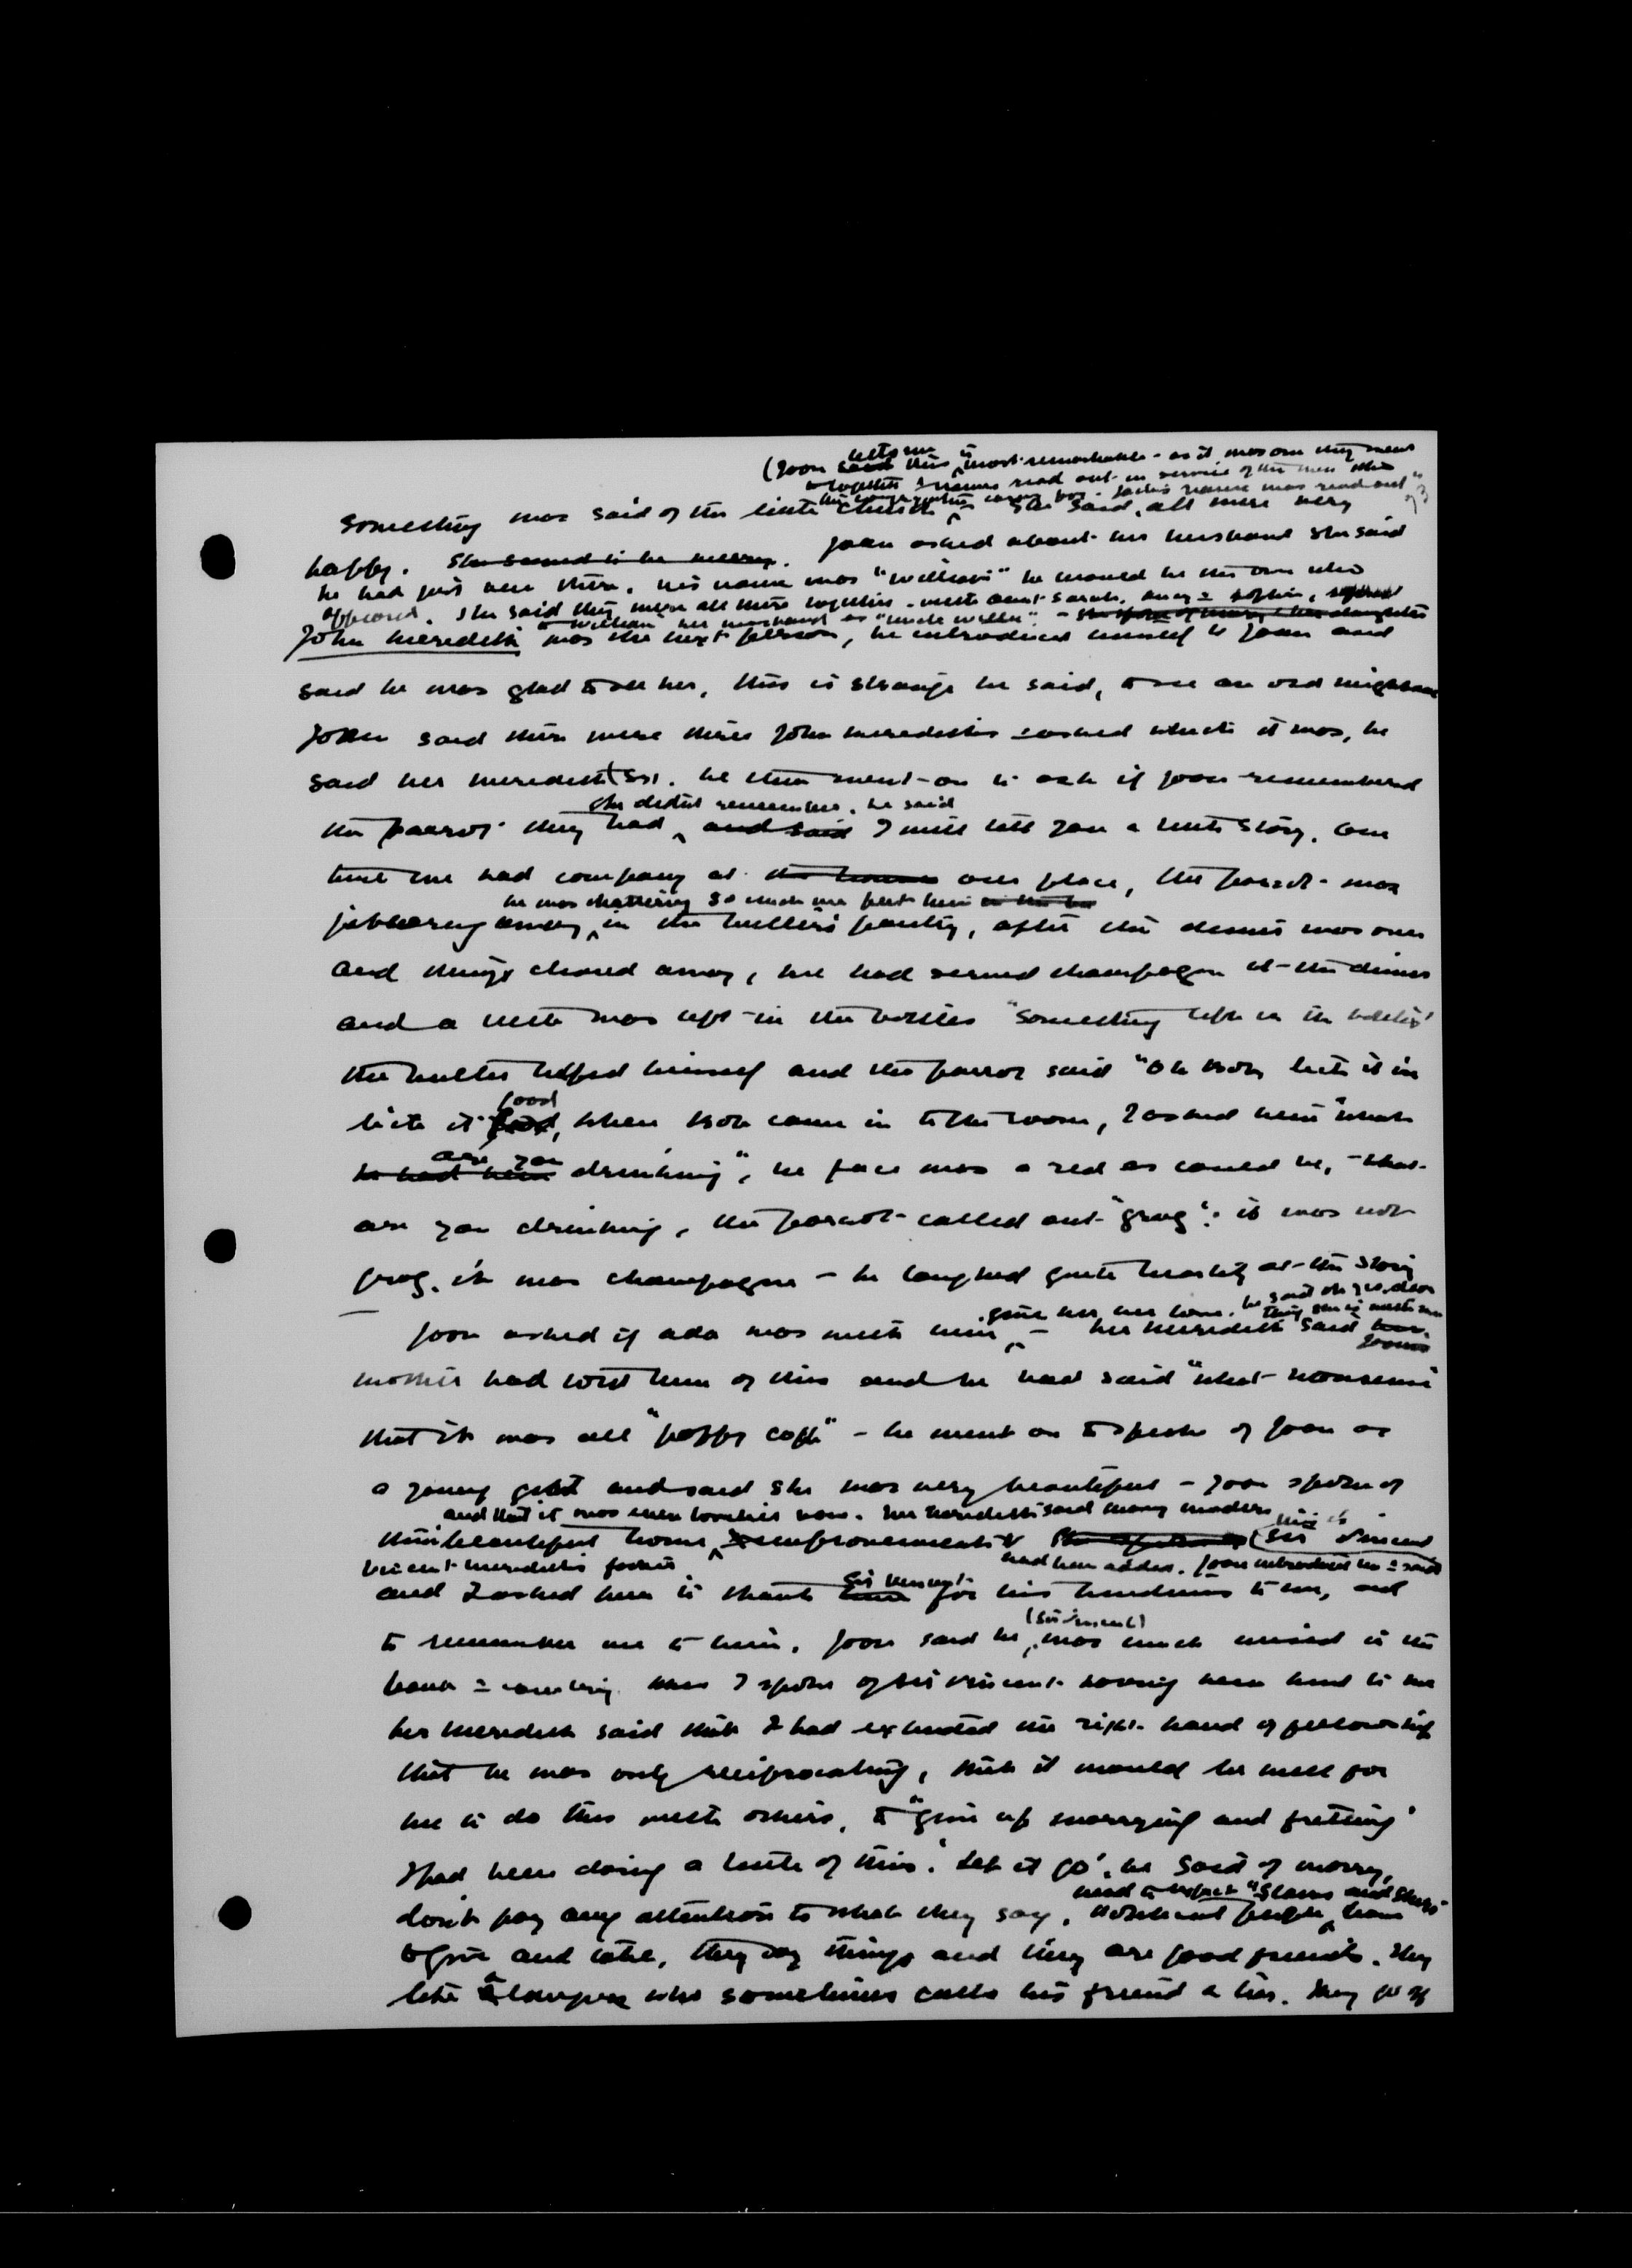 (Joan tells me this is most remarkable - as it was one they went
together & names read out in service of the men who
Jack's name was read out
Something was said of the little church - she said, all were very
happy. She seemed to be merry. Joan asked about her husband she said
he had just been there. his name was "William" he would be the one who
appeared. She said they were all there together - with aunt Sarah,
William her husband as "uncle Willie" - She spoke of Mary & her daughter
John Meredith was the next person, he introduced himself to Joan and
said he was glad to see her, this is strange he said, to see an old neighbour
Joan said there were three John Merediths & asked which it was, he
said her Meredith Sr. he then went on to ask if Joan remembered
she didn't remember. he said
the parrot they had and said I will tell you a little story. One
time we had company at the house our place, the parrot was
he was chattering so much we put him in the
jabbering away in the butler's pantry, after the dinner was over
and things cleared away, we had served champagne at the dinner
and a little was left in the bottles "something left in the bottles"
the butler helped himself and the parrot said "Oh Bob, bite it in
bite it good, when Bob came in to the room, I asked him "what
are you
he had been drinking", his face was a red as could be, - what
are you drinking, the parrot called out "grog". it was not
grog. it was champagne - he laughed quite heartily at the story
give her her love. he said oh yes, dear
thing she is with me
Joan asked if Ada was with him - her Meredith said her
Joan's
mother had told them of this and he had said "what nonsense
that it was all "poppy cock" - he went on to speak of Joan as
a young girl and said she was very beautiful - Joan spoke of
and that it was even lovelier now. her Meredith said many modern
their beautiful home improvements (Sir Vincent
Vincent Meredith's father had been added. Joan introduced me & said
and I asked him to thank Sir Vincent for his kindness to me, and
(Sir Vincent)
to remember me to him. Joan said he was much missed in the
bank & country when I spoke of Sir Vincent having been kind to me
her Meredith said that I had extended the right hand of fellowship
that he was only reciprocating, that it would be well for
me to do this with others, to "give up worrying and fretting"
I had been doing a little of this. "Let it go", he said of worry,
need to expect "slams and slurs"
don't pay any attention to what they say. people have
to give and take, they say things and they are good friends. They
like a lawyer who sometimes calls his friend a liar. They go off